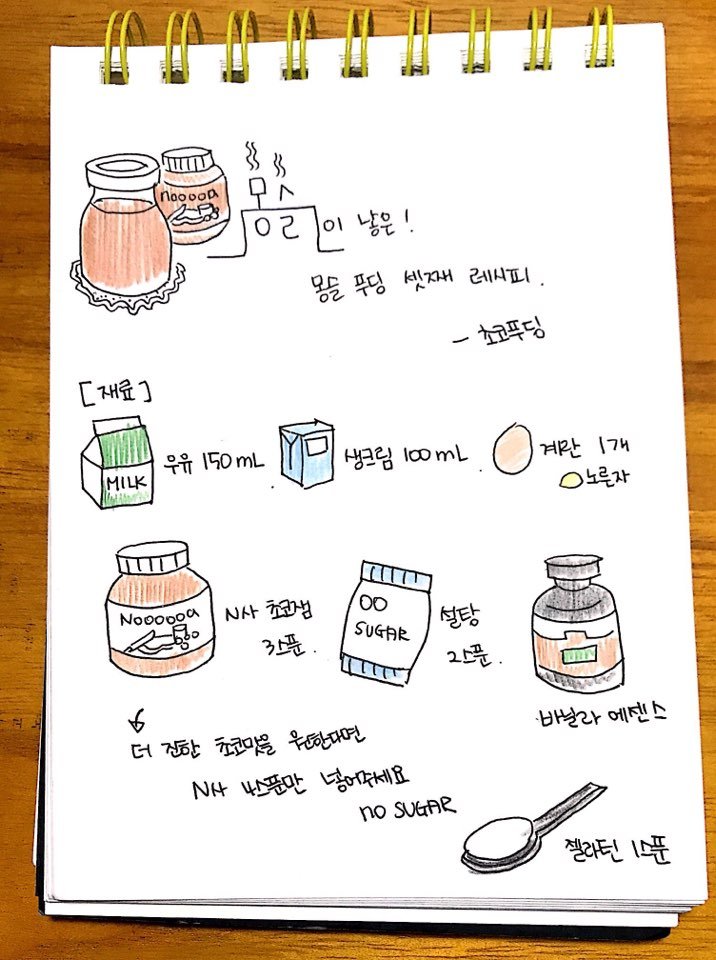 Nooooa
우리이 낳은!
몽슬 푸딩 셋째 레시피.
- 초코푸딩
[재료]
MILK
우유 150mL.
생크림 100mL.
계란 1개
노른자
Nooooooa
N사 초코잼
3스푼.
OO
SUGAR
설탕
2스푼.
바닐라 에센스
더 진한 초코맛을 원한다면
N사 4스푼만 넣어주세요
no SUGAR
젤라틴 1스푼